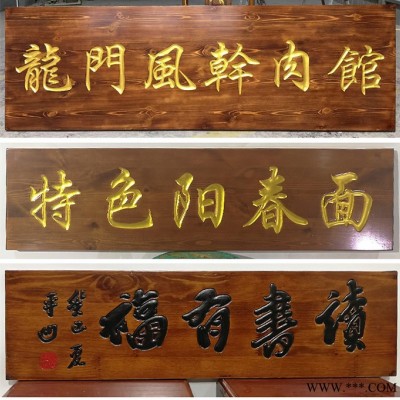 龍門風幹肉館
特色阳春面
讀書有福
癸巳夏
平凹
www.***.COM